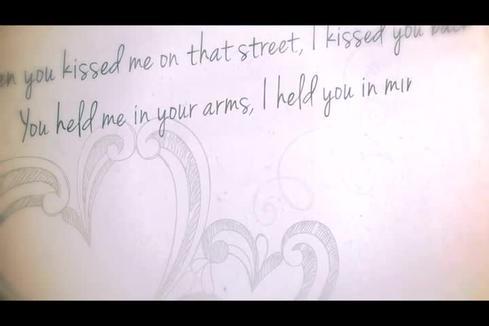 en you kissed me on that street, I kissed you back
You held me in your arms, I held you in min